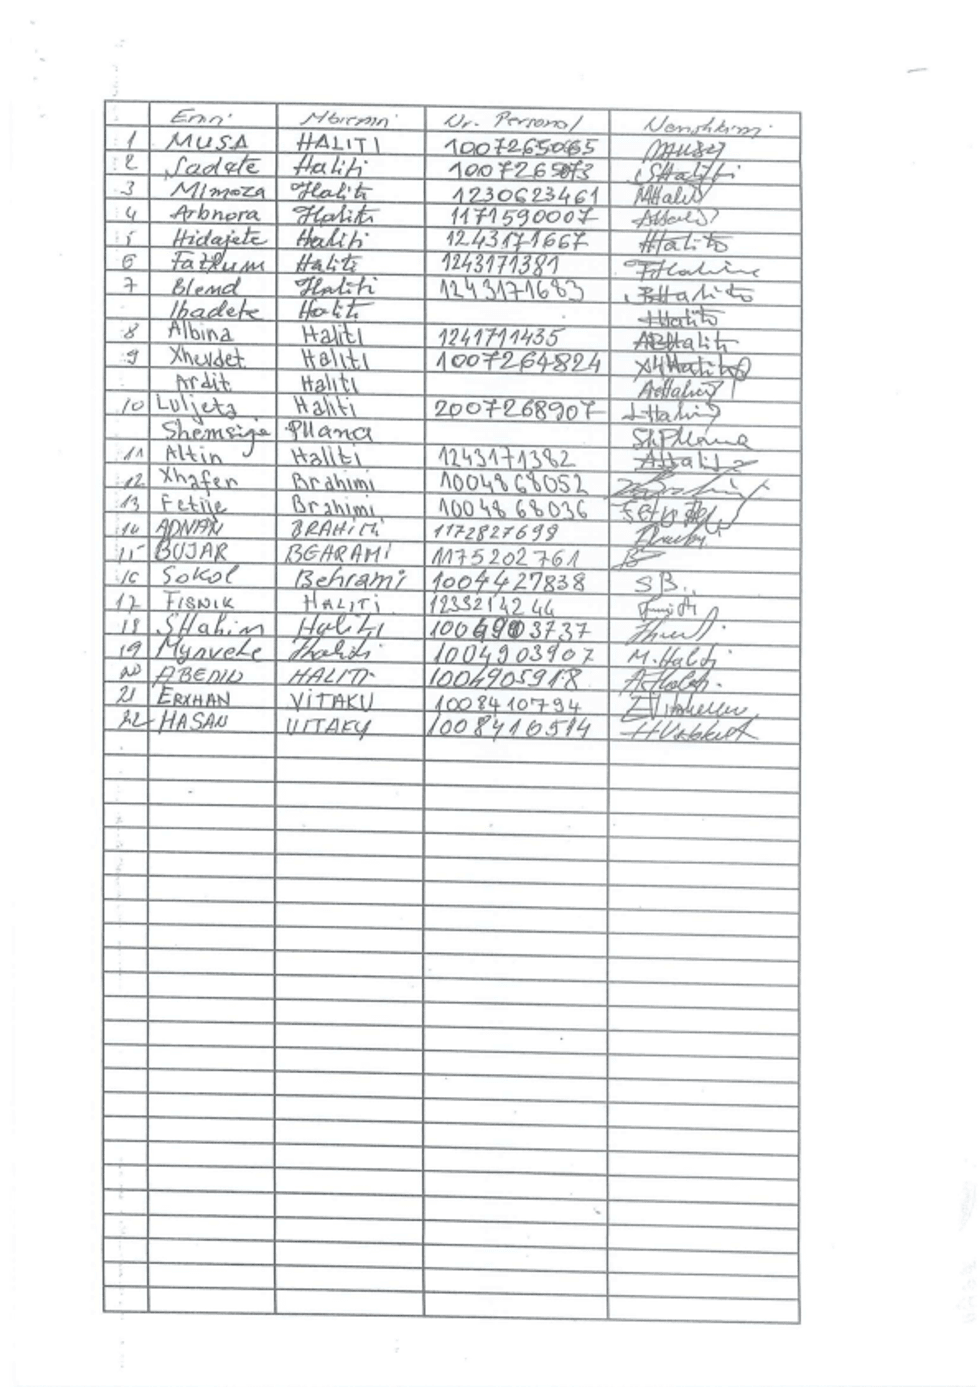 Emri Mbiemri Nr. Personal Nënshkrimi
1 MUSA HALITI 1007265065 Musa
2 Sadete Haliti SHaliti
3 Mimoza Haliti 1230623461 MHaliti
4 Arbnora Haliti 1171590007
5 Hidajete Haliti 1243171667 HHaliti
6 Fatlum Haliti 1243171381
7 Blend Haliti 1243171683 BHaliti
Ibadete Haliti IHaliti
8 Albina Haliti 1241711435 ABHaliti
9 Xhevdet Haliti 1007264824 XHHaliti
Ardit Haliti AHaliti
10 Luljeta Haliti 2007268907 LHaliti
Shemsije Pllana ShPllana
11 Altin Haliti 1243171382 AHaliti
12 Xhafer Brahimi 1004868052
13 Fetije Brahimi 1004868036
14 ADNAN BRAHIMI 1172827698
15 BUJAR BEHRAMI 1175202761 B
16 Sokol Behrami 1004427838 S B.
17 FISNIK HALITI 1233214244
18 SHahin Haliti
19 Myrvete Haliti 1004903907 M. Haliti
20 ABEDIN HALITI 1004905918 A. Haliti
21 ERXHAN VITAKU 1008410794
22 HASAN VITAKU 1008410514